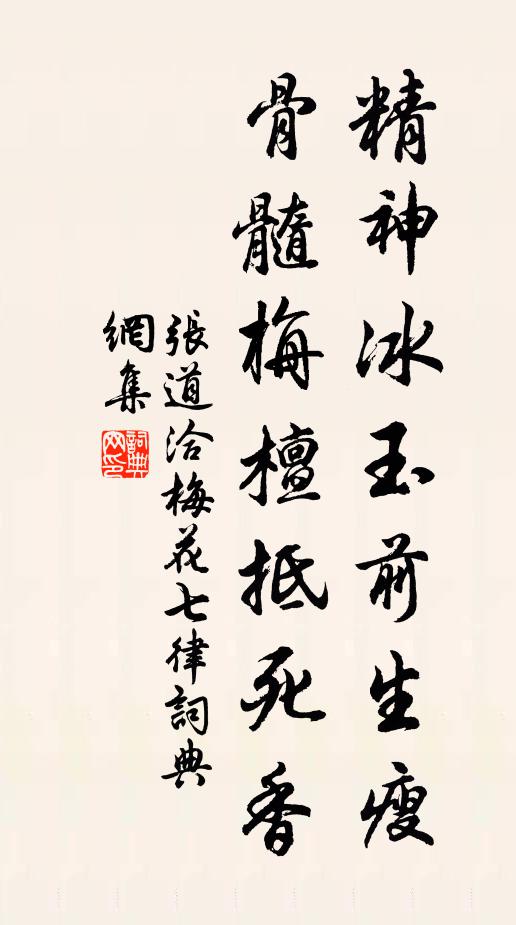 精神冰玉前生瘦
骨髓梅檀抵死香
張道洽梅花七律詞典
網集
詞典
网印